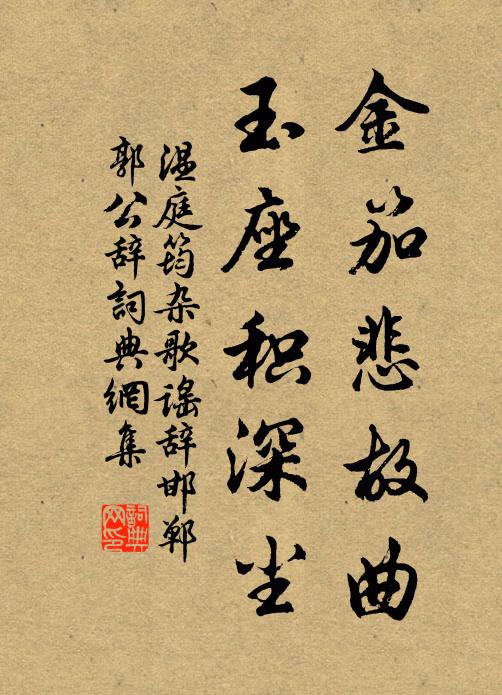 金笳悲故曲
玉座积深尘
温庭筠杂歌謡辞邯郸
郭公辞詞典網集
詞典网印